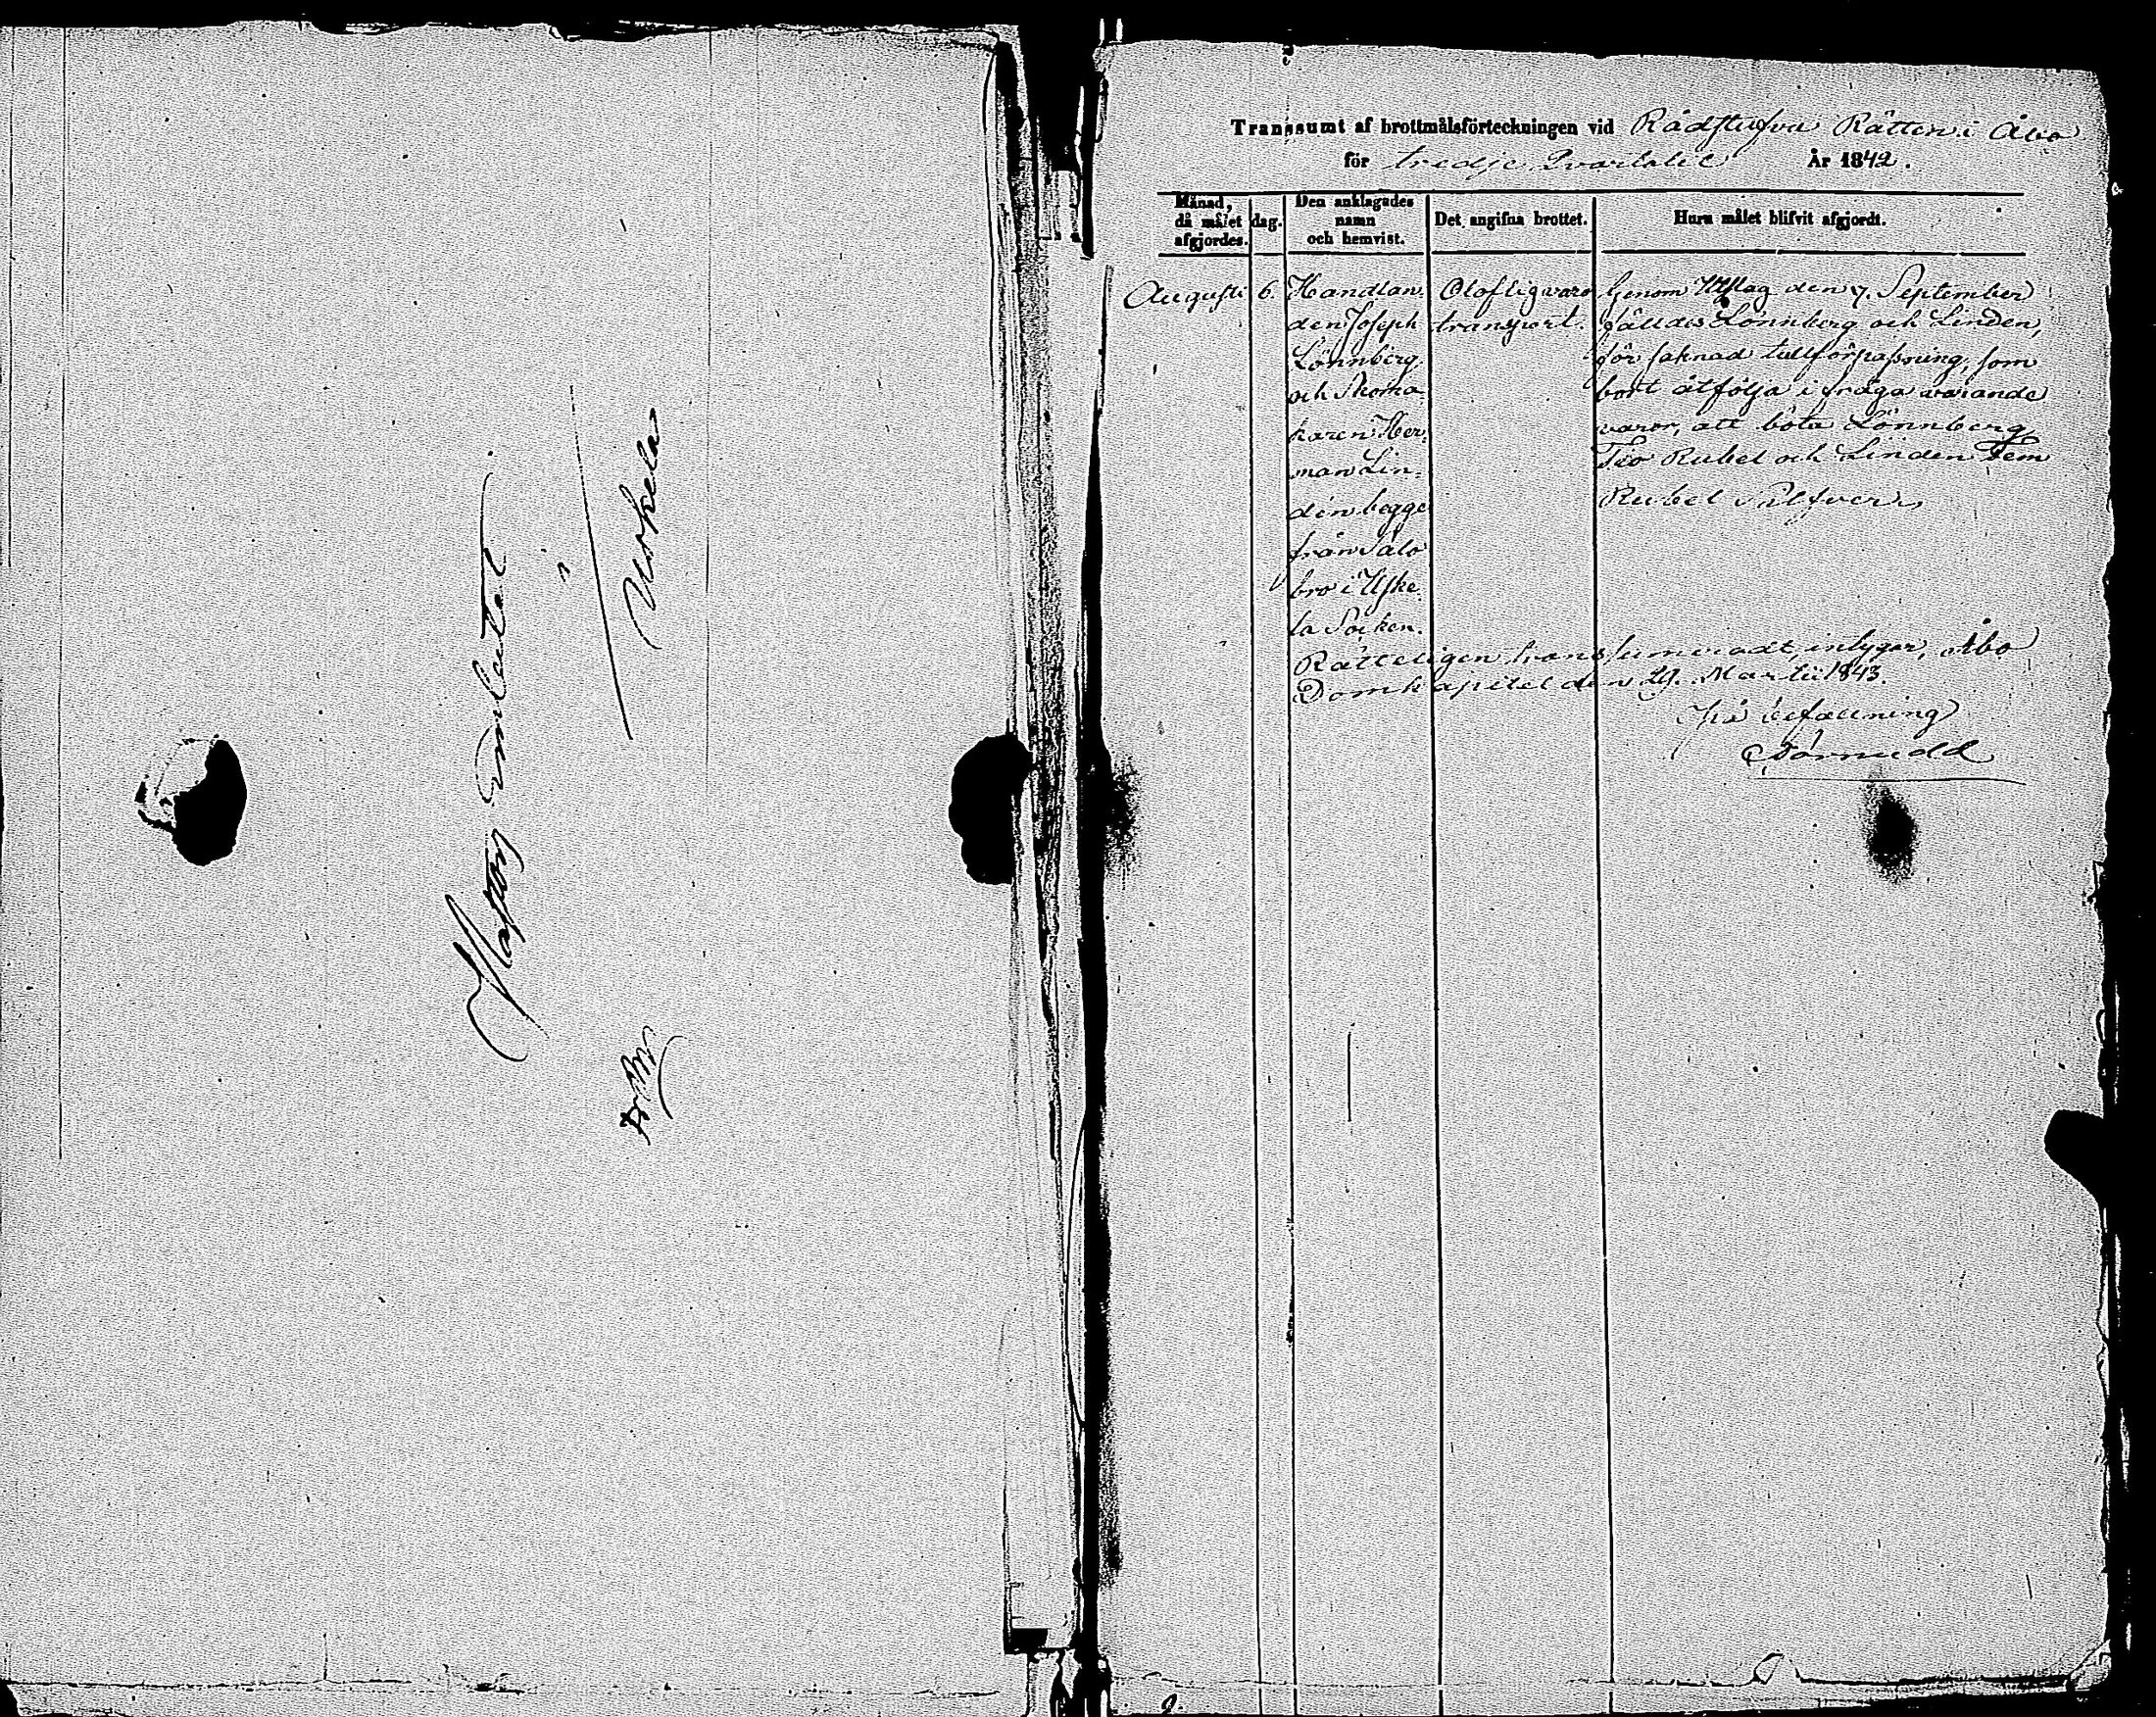 Uskela
Transsumt af brottmålsförteckningen vid Rådstufvu Rätten i Åbo
för tredje Qvartalet År 1842.
Månad, då målet afgjordes.
dag.
Den anklagades namn och hemvist.
Det angifna brottet.
Huru målet blifvit afgjordt.
Augusti
6.
Handlan-
den Joseph
Lönnberg
och Skoma-
karen Her-
man Lin-
den begge
från Salo
bro i Uske-
la Socken.
Oloflig varu
transport.
Genom Utslag den 7. September
fälldes Lönnberg och Linden,
för saknad tullförpassning, som
bort åtfölja i fråga warande
waror, att böta Lönnberg
Tio Rubel och Linden Fem
Rubel Silfver
Rätteligen transsumeradt, intygar, Åbo
Domkapitel den 29. Martii 1843.
På befallning
Törnudd